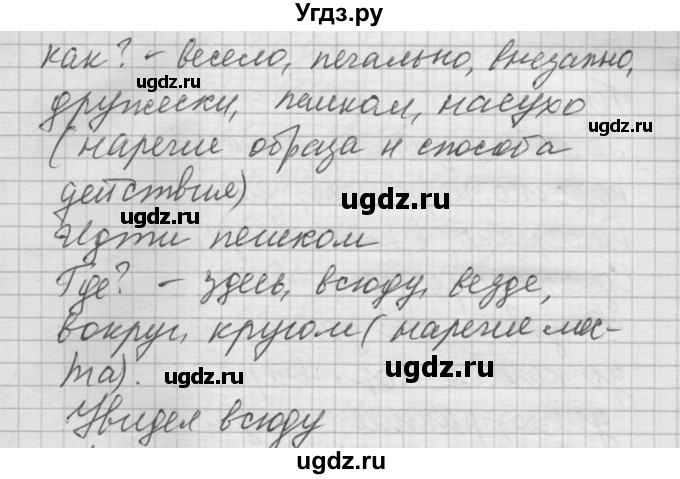 Угдз.ру
как? - весело, печально, внезапно,
ugdz.ru
дружески, пешком, насухо
ugdz.ru
(наречие образа и способа
действия)
ugdz.ru
ugdz.ru
Идти пешком
Где? - здесь, всюду, везде,
вокруг, кругом (наречие мес-
та).
ugdz.ru
ugdz.ru
Увидел всюду
ugdz.ru